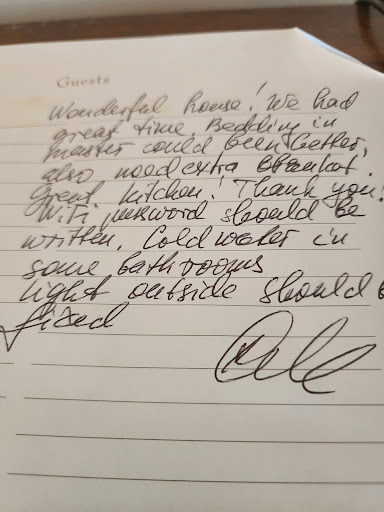 Guests
Wonderful house! We had
great time. Bedding in
master could been better,
also need extra blanket.
Great kitchen! Thank you!
WiFi password should be
written. Cold water in
some bathrooms
light outside should b
fixed